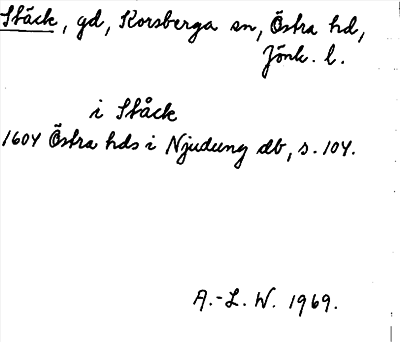 Stäck, gd, Korsberga sn, Östra hd,
Jönk. l.
i Ståck
1604 Östra hds i Njudung db, s. 104.
A.-L. W. 1969.